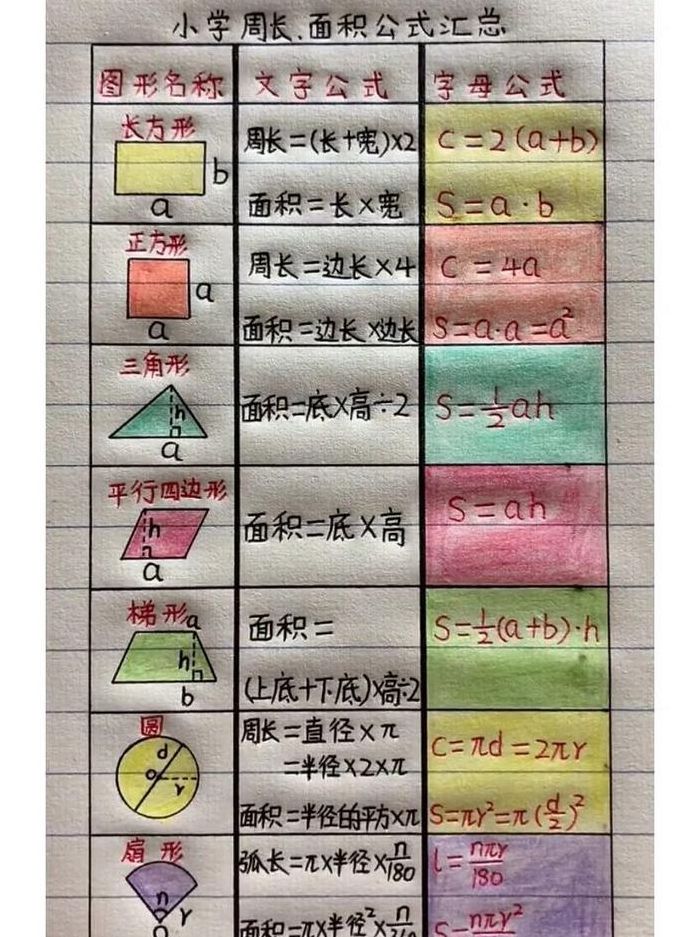 小学周长、面积公式汇总
图形名称 文字公式 字母公式
长方形
b
a
周长=(长+宽)×2
面积=长×宽
C=2(a+b)
S=a·b
正方形
a
a
周长=边长×4
面积=边长×边长
C=4a
S=a·a=a²
三角形
h
a
面积=底×高÷2
S=½ah
平行四边形
h
a
面积=底×高
S=ah
梯形
a
h
b
面积=
(上底+下底)×高÷2
S=½(a+b)·h
圆
d
o
r
周长=直径×π
=半径×2×π
面积=半径的平方×π
C=πd=2πr
S=πr²=π(d/2)²
扇形
n
r
弧长=π×半径×n/180
面积=π×半径²×n
l=nπr/180
S=nπr²